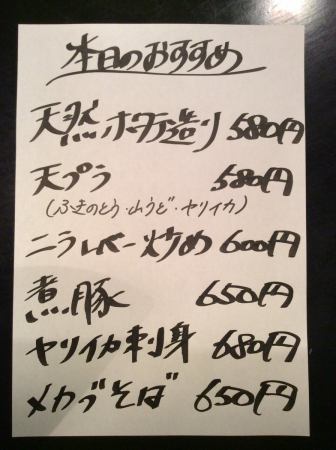 本日のおすすめ
天然ホタテ造り 580円
天プラ 580円
(ふきのとう・山うど・ヤリイカ)
ニラレバー炒め 600円
煮豚 650円
ヤリイカ刺身 680円
メカブそば 650円